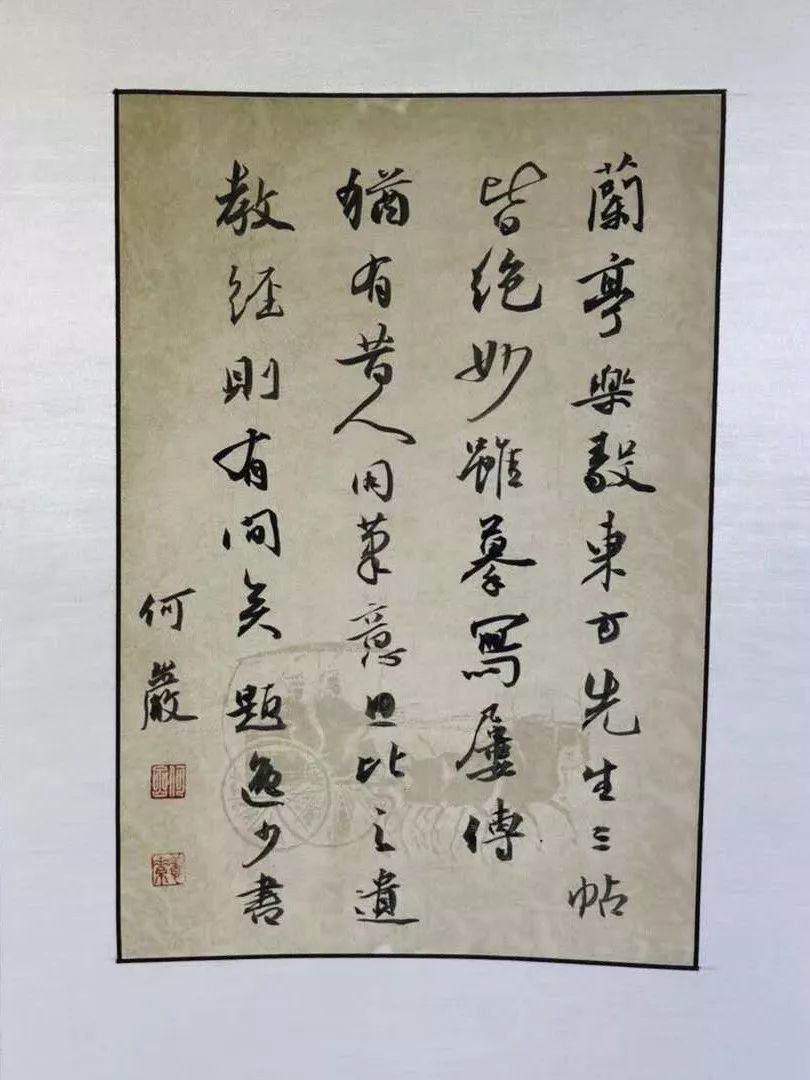 蘭亭樂毅東方先生三帖
皆絶妙雖摹寫屢傳
猶有昔人用筆意思比之遺
教經則有間矣題逸少書
何巖